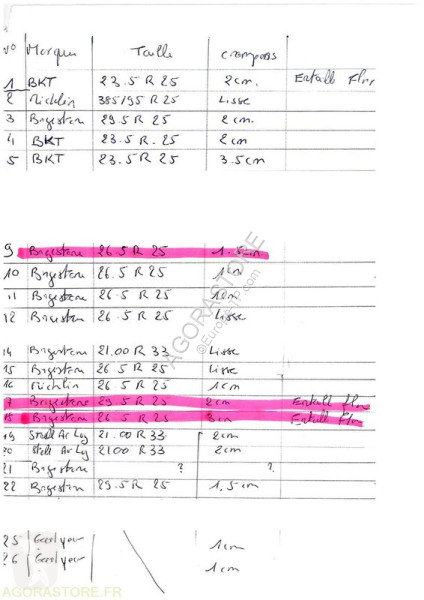 N° Marque Taille crampons
1 BKT 23.5 R 25 2cm. Entaille Flan
2 Michlin 385/95 R 25 Lisse
3 Brigestone 29.5 R 25 2cm.
4 BKT 23.5 R. 25 2cm
5 BKT 23.5 R 25 3.5cm
9 Brigestone 26.5 R 25 1.5cm
10 Brigestone 26.5 R 25 1cm
11 Brigestone 26.5 R 25 1cm
12 Brigestone 26.5 R 25 Lisse
14 Brigestone 21.00 R 33 Lisse
15 Brigestone 26.5 R 25 Lisse
16 Michlin 26.5 R 25 1cm
17 Brigestone 29.5 R 25 2cm Entaille flan
18 Brigestone 26.5 R 25 3cm Entaille Flan
19 21.00 R 33 2cm
20 2100 R 33 2cm
21 Brigestone ? ?
22 Brigestone 29.5 R 25 1,5cm
25 Goodyear 1cm
26 Goodyear 1cm
AGORASTORE
©Europe-TP.com
AGORASTORE.FR